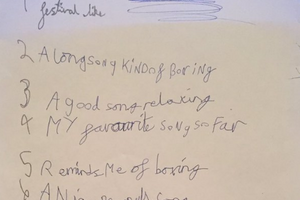 1
festival like
2 A long song KiND of Boring
3 A good song relaxing
4 MY favourite song so Far
5 Reminds Me of boxing
6